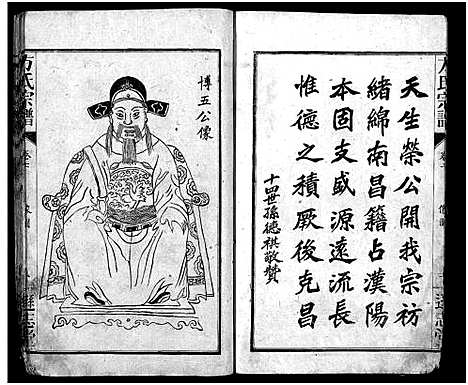 天生榮公開我宗祊
緒綿南昌籍占漢陽
本固支盛源遠流長
惟德之積厥後克昌
十四世孫德祺敬贊
博五公像
方氏宗譜
方氏宗譜